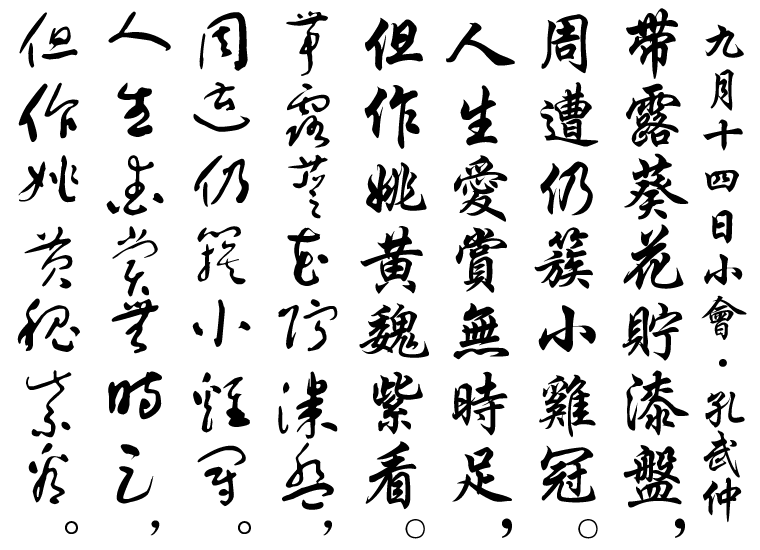 九月十四日小會・孔武仲
帶露葵花貯漆盤，
周遭仍簇小雞冠。
人生愛賞無時足，
但作姚黃魏紫看。
帶露葵花貯漆盤，
周遭仍簇小雞冠。
人生愛賞無時足，
但作姚黃魏紫看。